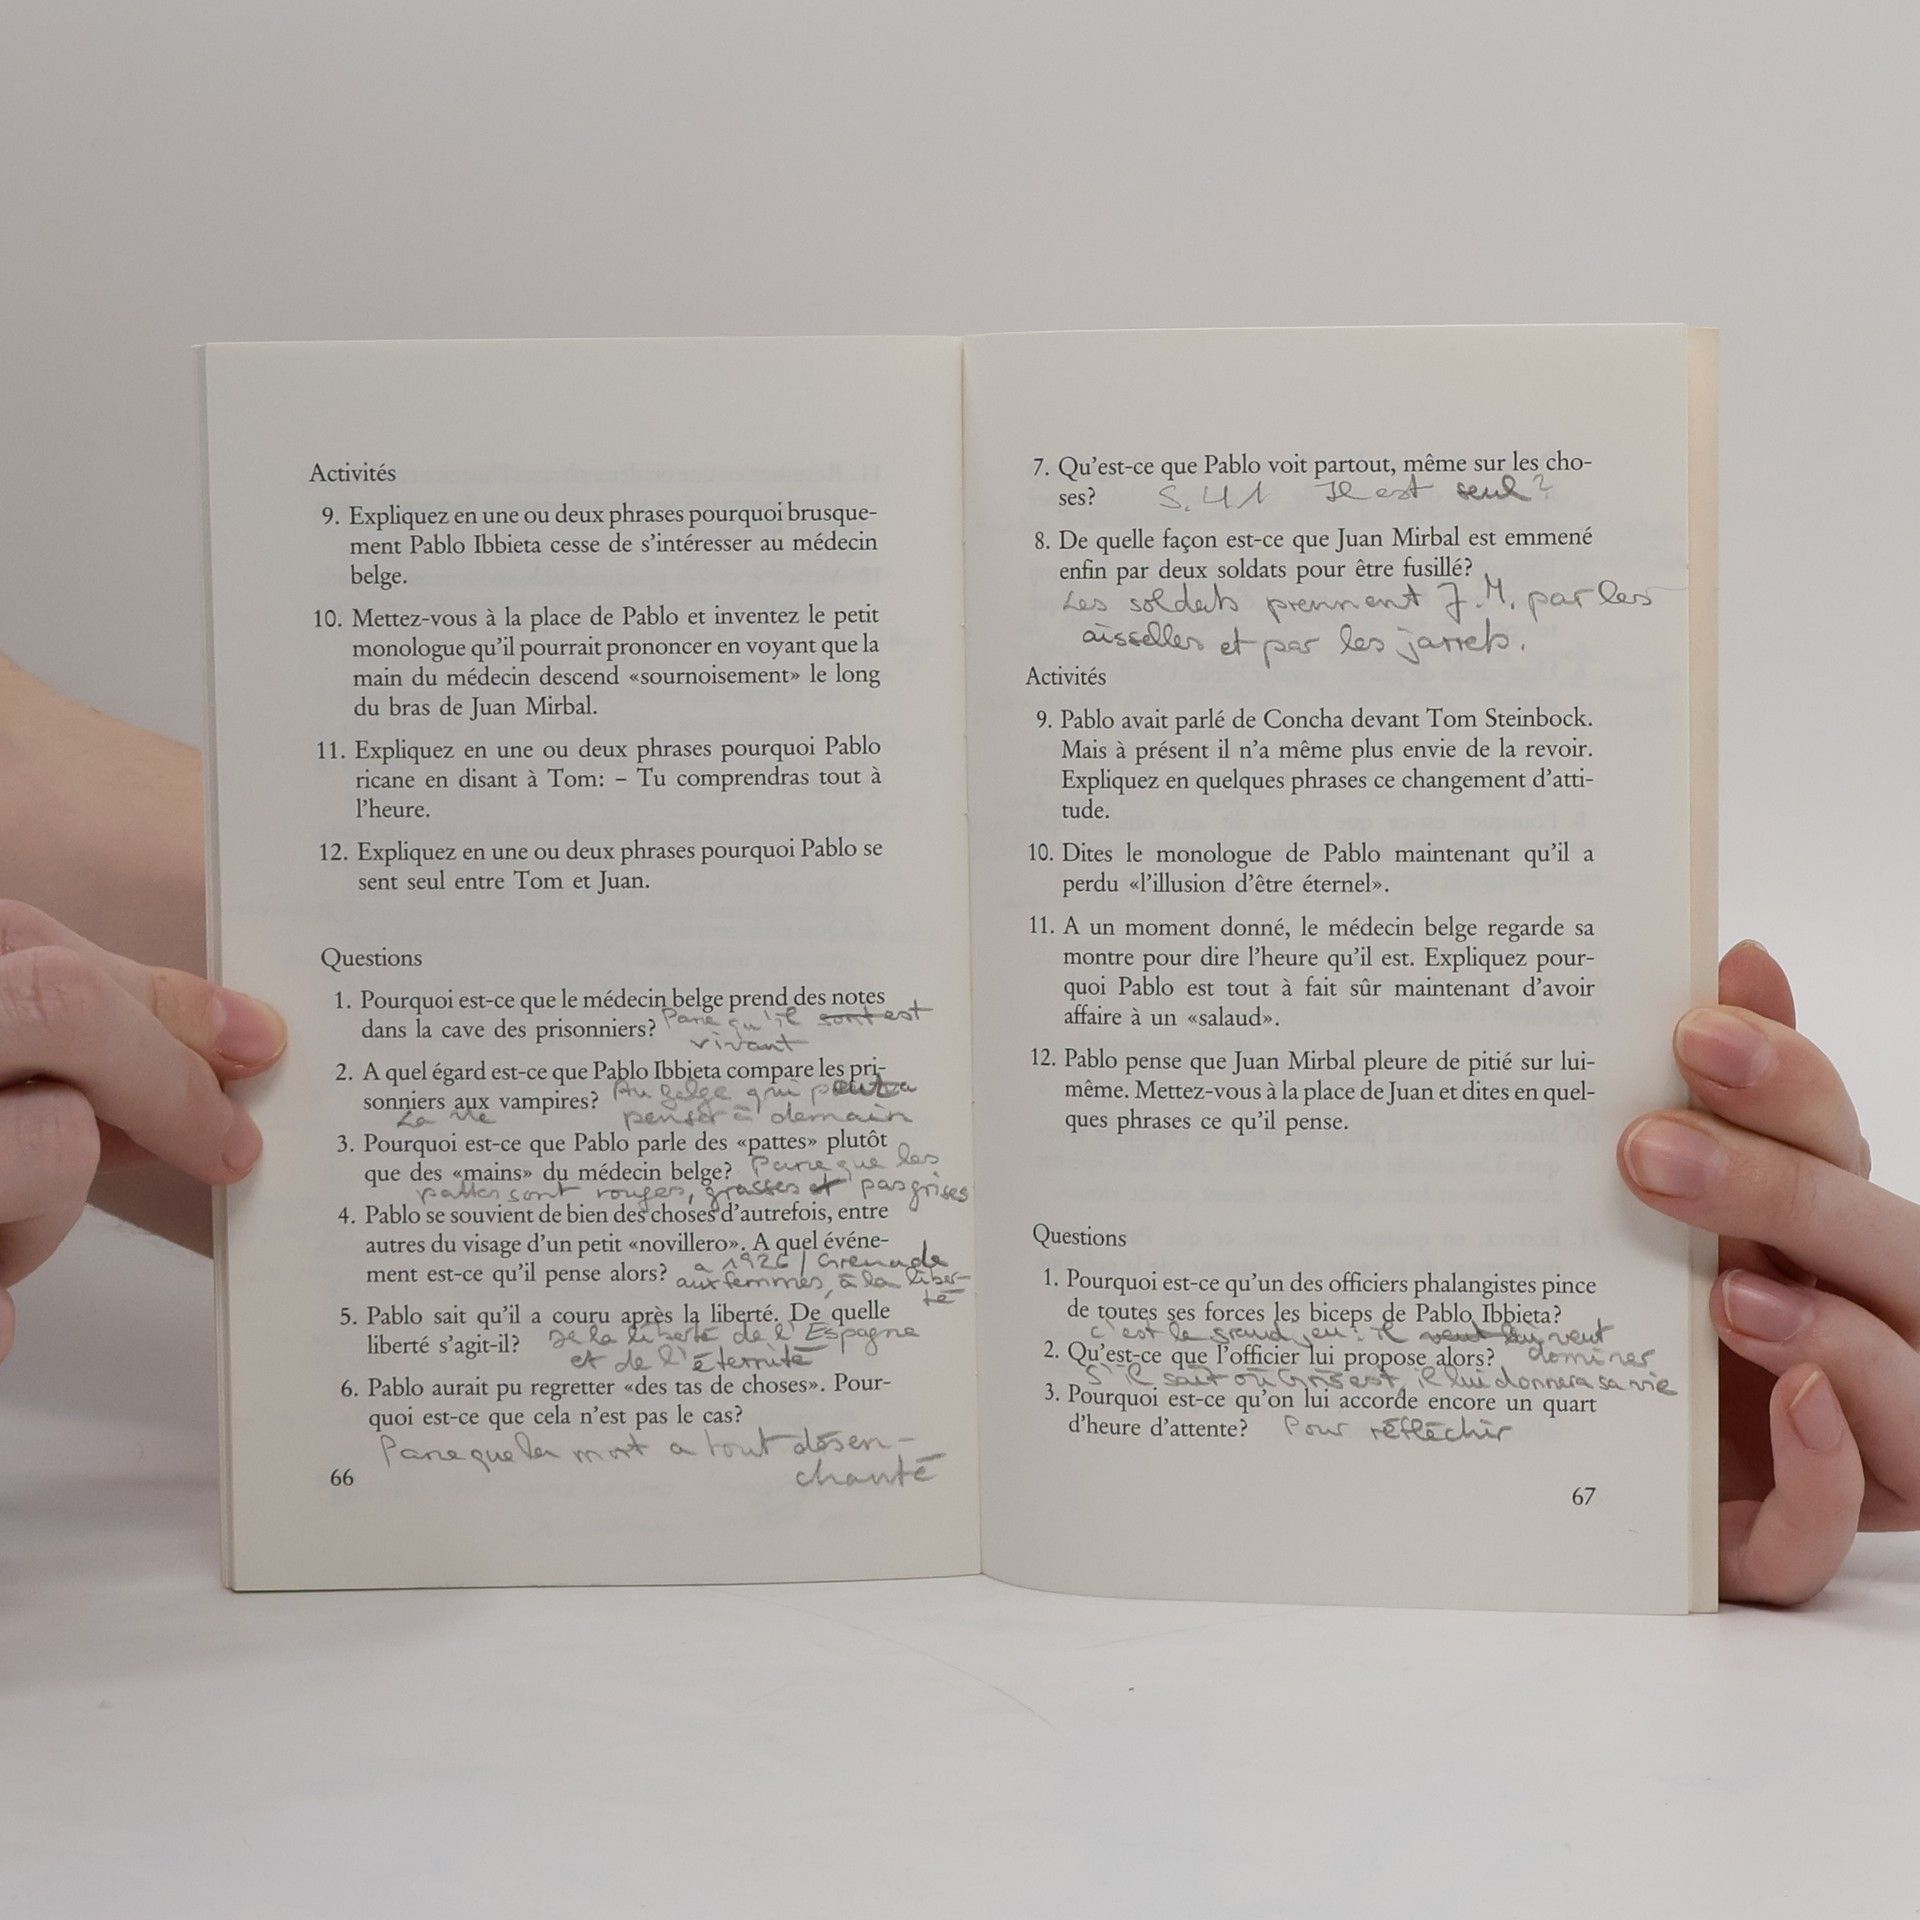 Activités
9. Expliquez en une ou deux phrases pourquoi brusque-
ment Pablo Ibbieta cesse de s'intéresser au médecin
belge.
10. Mettez-vous à la place de Pablo et inventez le petit
monologue qu'il pourrait prononcer en voyant que la
main du médecin descend «sournoisement» le long
du bras de Juan Mirbal.
11. Expliquez en une ou deux phrases pourquoi Pablo
ricane en disant à Tom: – Tu comprendras tout à
l'heure.
12. Expliquez en une ou deux phrases pourquoi Pablo se
sent seul entre Tom et Juan.
Questions
1. Pourquoi est-ce que le médecin belge prend des notes
dans la cave des prisonniers? Parce qu'il sont est
vivant
2. A quel égard est-ce que Pablo Ibbieta compare les pri-
sonniers aux vampires? Au belge qui
La vie penser à demain
3. Pourquoi est-ce que Pablo parle des «pattes» plutôt
que des «mains» du médecin belge? Parce que les
pattes sont rouges, grasses et pas grises
4. Pablo se souvient de bien des choses d'autrefois, entre
autres du visage d'un petit «novillero». A quel événe-
ment est-ce qu'il pense alors? a 1926 / Grenade
aux femmes, à la liber-
té
5. Pablo sait qu'il a couru après la liberté. De quelle
liberté s'agit-il? De la liberté de l'Espagne
et de l'éternité
6. Pablo aurait pu regretter «des tas de choses». Pour-
quoi est-ce que cela n'est pas le cas?
Parce que la mort a tout désen-
chanté
66
7. Qu'est-ce que Pablo voit partout, même sur les cho-
ses? S. 41 Il est seul?
8. De quelle façon est-ce que Juan Mirbal est emmené
enfin par deux soldats pour être fusillé?
Les soldats prennent J. M. par les
aisselles et par les jarrets.
Activités
9. Pablo avait parlé de Concha devant Tom Steinbock.
Mais à présent il n'a même plus envie de la revoir.
Expliquez en quelques phrases ce changement d'atti-
tude.
10. Dites le monologue de Pablo maintenant qu'il a
perdu «l'illusion d'être éternel».
11. A un moment donné, le médecin belge regarde sa
montre pour dire l'heure qu'il est. Expliquez pour-
quoi Pablo est tout à fait sûr maintenant d'avoir
affaire à un «salaud».
12. Pablo pense que Juan Mirbal pleure de pitié sur lui-
même. Mettez-vous à la place de Juan et dites en quel-
ques phrases ce qu'il pense.
Questions
1. Pourquoi est-ce qu'un des officiers phalangistes pince
de toutes ses forces les biceps de Pablo Ibbieta?
c'est le grand jeu: il veut veut
2. Qu'est-ce que l'officier lui propose alors? dominer
S'il sait où Gris est, il lui donnera sa vie
3. Pourquoi est-ce qu'on lui accorde encore un quart
d'heure d'attente? Pour réfléchir
67